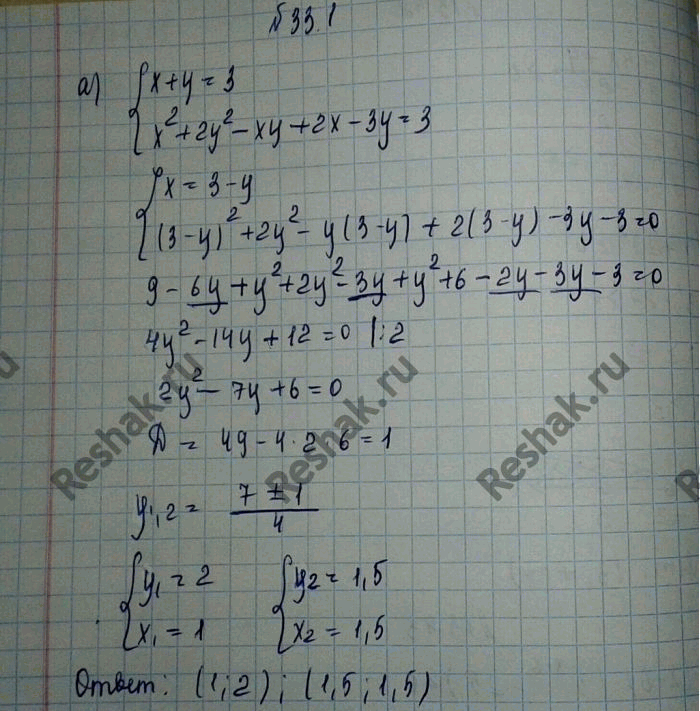 №33.1
а) {x+y=3
x²+2y²-xy+2x-3y=3
{x=3-y
(3-y)²+2y²-y(3-y)+2(3-y)-3y-3=0
9-6y+y²+2y²-3y+y²+6-2y-3y-3=0
4y²-14y+12=0 |:2
2y²-7y+6=0
D = 49-4·2·6=1
y₁,₂ = (7±1)/4
{y₁=2 {y₂=1,5
x₁=1 x₂=1,5
Ответ: (1;2); (1,5;1,5)
Reshak.ru
Reshak.ru
Reshak.ru